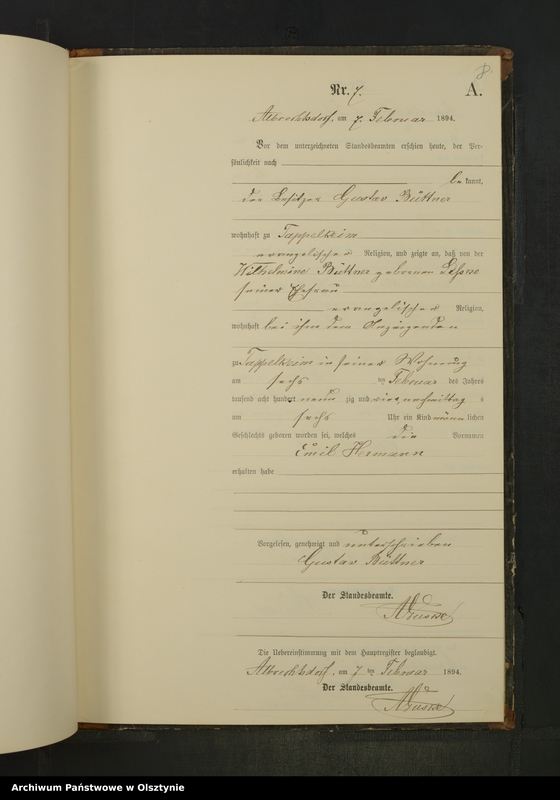 8.
Nr. 7.
A.
Albrechtsdorf, am 7. Februar 1894.
Vor dem unterzeichneten Standesbeamten erschien heute, der Per-
sönlichkeit nach
be kannt,
der Besitzer Gustav Büttner
wohnhaft zu Tappelkeim
evangelischer Religion, und zeigte an, daß von der
Wilhelmine Büttner geborenen
seiner Ehefrau
evangelischer Religion,
wohnhaft bei ihm dem Anzeigenden
zu Tappelkeim in seiner Wohnung
am sechsten Februar des Jahres
tausend acht hundert neun zig und vier, nachmittag s
um sechs Uhr ein Kind männ lichen
Geschlechts geboren worden sei, welches die Vornamen
Emil Hermann
erhalten habe
Vorgelesen, genehmigt und unterschrieben
Gustav Büttner
Der Standesbeamte.
Die Uebereinstimmung mit dem Hauptregister beglaubigt.
Albrechtsdorf, am 7ten Februar 1894.
Der Standesbeamte.
Archiwum Państwowe w Olsztynie